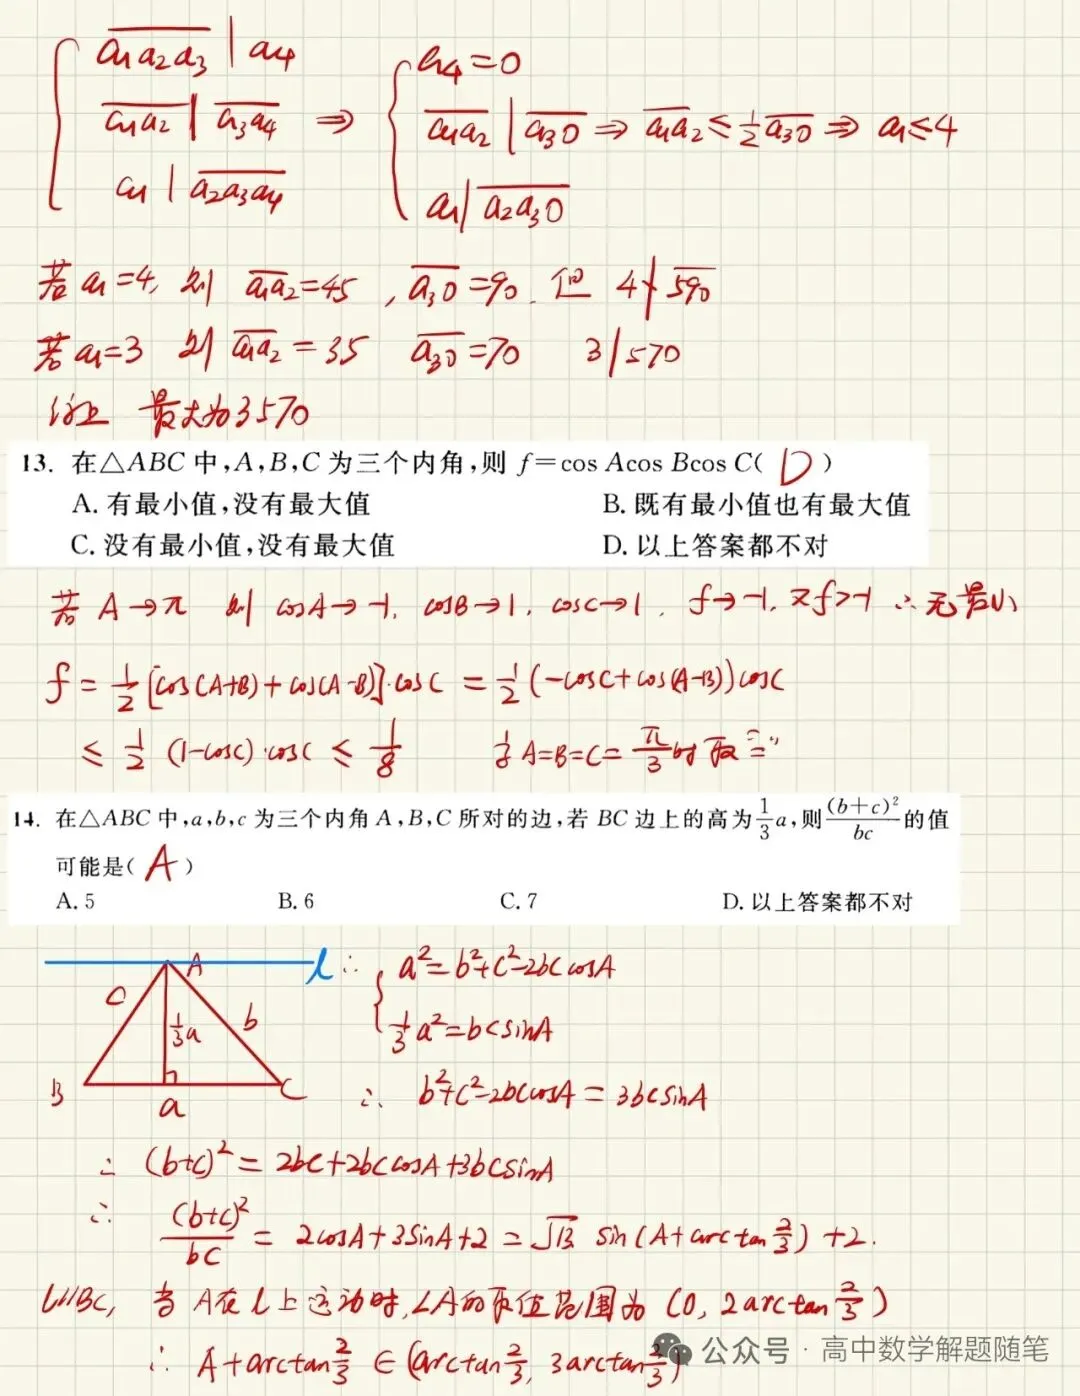 { \overline{a₁a₂a₃} | a₄ ⇒ { a₄=0
\overline{a₁a₂} | \overline{a₃a₄} \overline{a₁a₂} | \overline{a₃0} ⇒ \overline{a₁a₂} ≤ ½\overline{a₃0} ⇒ a₁≤4
a₁ | \overline{a₂a₃a₄} a₁ | \overline{a₂a₃0}
若 a₁=4, 则 \overline{a₁a₂}=45, \overline{a₃0}=90. 但 4∤\overline{590}
若 a₁=3 则 \overline{a₁a₂}=35 \overline{a₃0}=70 3|570
综上 最大为3570
13. 在△ABC 中,A,B,C 为三个内角,则 f=cos Acos Bcos C( D )
A. 有最小值,没有最大值 B. 既有最小值也有最大值
C. 没有最小值,没有最大值 D. 以上答案都不对
若 A→π 则 cosA→-1, cosB→1, cosC→1, f→-1, 又f>-1 ∴无最小
f = ½[cos(A+B)+cos(A-B)]·cosC = ½(-cosC+cos(A-B))cosC
≤ ½(1-cosC)·cosC ≤ 1/8 当 A=B=C=π/3 时取"="
14. 在△ABC 中,a,b,c 为三个内角 A,B,C 所对的边,若 BC 边上的高为 1/3 a,则 (b+c)²/bc 的值
可能是( A )
A. 5 B. 6 C. 7 D. 以上答案都不对
A l ∴ { a²=b²+c²-2bccosA
c ⅓a b ⅓a²=bcsinA
B a C ∴ b²+c²-2bccosA = 3bcsinA
∴ (b+c)² = 2bc+2bccosA+3bcsinA
∴ (b+c)²/bc = 2cosA+3sinA+2 = √13 sin(A+arctan 2/3)+2.
l//BC, 当 A在 l 上运动时,∠A的取值范围为 (0, 2arctan 2/3)
∴ A+arctan 2/3 ∈ (arctan 2/3, 3arctan 2/3)
公众号 · 高中数学解题随笔